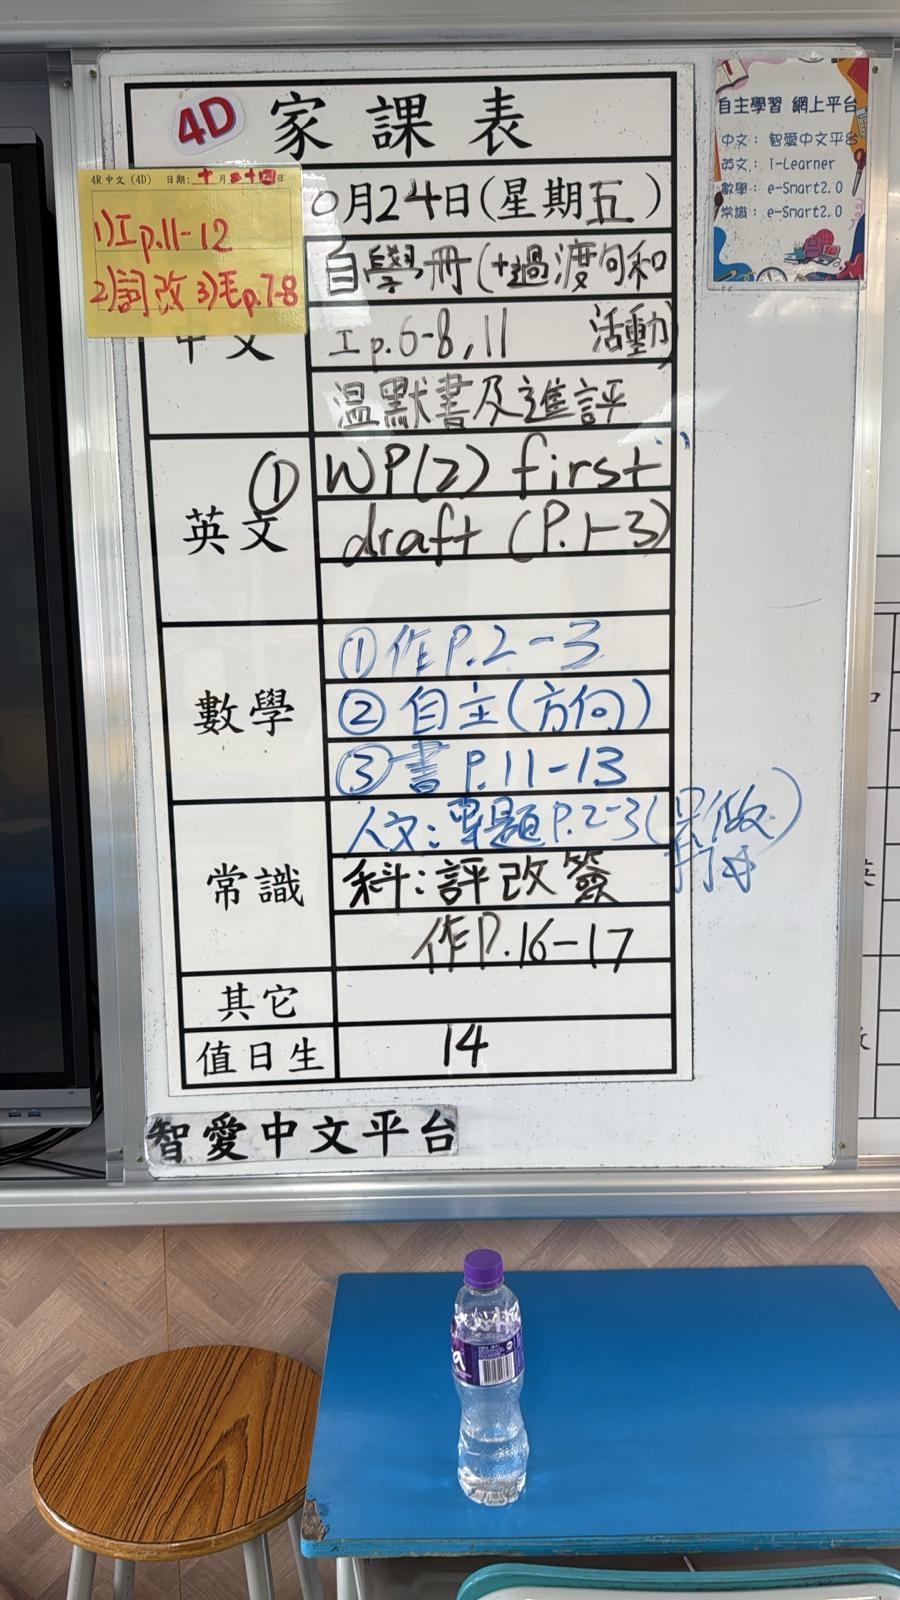 4D 家課表
4R中文(4D) 日期:十月二十四日
1)工p.11-12
2)詞改 3)毛p.7-8
0月24日(星期五)
中文
自學冊(+過渡句和
工p.6-8,11 活動)
溫默書及進評
英文
① WP(2) first
draft (P.1-3)
數學
①作P.2-3
②自主(方向)
③書P.11-13
常識
人文:專題P.2-3(只做)
科:評改簽
作P.16-17
其它
值日生
14
智愛中文平台
自主學習 網上平台
中文: 智愛中文平台
英文: I-Learner
數學: e-Smart2.0
常識: e-Smart2.0